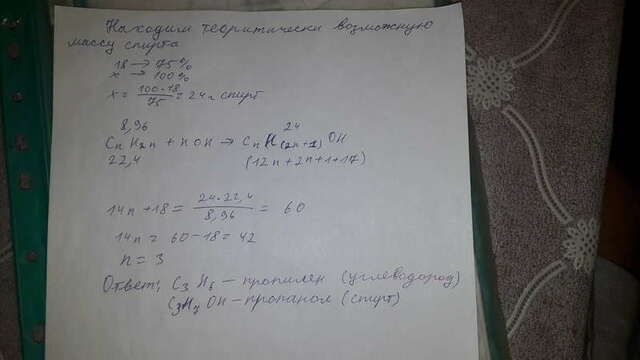 Находим теоритически возможную
массу спирта
18 → 75%
x → 100%
x = 100·18 / 75 = 24 г спирт
8,96 24
CnH2n + HOH → CnH(2n+1)OH
22,4 (12n+2n+1+17)
14n+18 = 24·22,4 / 8,96 = 60
14n = 60-18 = 42
n = 3
Ответ; C3H6 – пропилен (углеводород)
C3H7OH – пропанол (спирт)